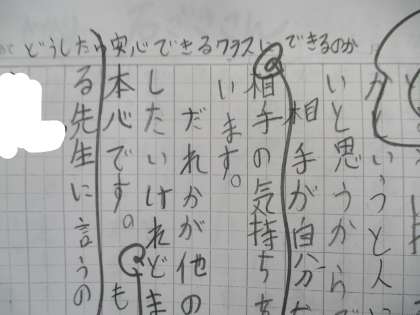 どうしたら安心できるクラスにできるのか
かというと人
いと思うからで
相手が自分
相手の気持ちを
います。
だれかが他の
したいけれどま
本心です。も
る先生に言うの